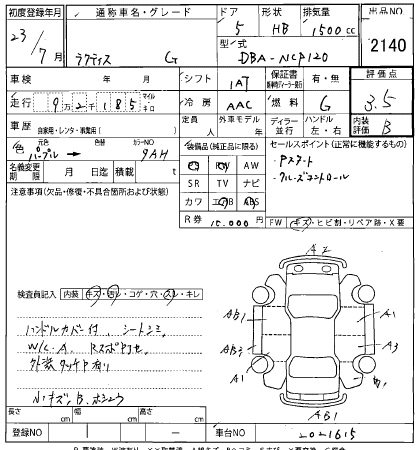 初度登録年月 通称車名・グレード ドア 形状 排気量 出品NO
23/7月 ラクティス G 5 HB 1500cc 2140
型式 DBA-NCP120
車検 年 月 シフト 1AT 保証書 有・無 評価点
走行 9万2千185 マイル キロ 冷房 AAC 燃料 G 3.5
車歴 自家用・レンタ・事業用( ) 定員 人 外車モデル ディーラー 並行 ハンドル 左・右 内装評価 B
色 元色 パープル 色替 カラーNO 9AH 装備品(純正品に限る) セールスポイント(正常に機能するもの)
PS PW AW Pスタート
名義変更期限 月 日迄 積載 t SR TV ナビ クルーズコントロール
注意事項(欠品・修復・不具合箇所および状態) カワ エアB ABS
R券 10,000円 FW キズ・ヒビ割・リペア跡・X要
A2
検査員記入 内装 キズ・汚レ・コゲ・穴・スレ・キレ
AB1 A1
ハンドルカバー付、シートシミ
AB3 A3
W/C.A、
外装タッチP有り A1
AB1
長さ cm 幅 cm 高さ cm
登録NO ー 車台NO 2021615